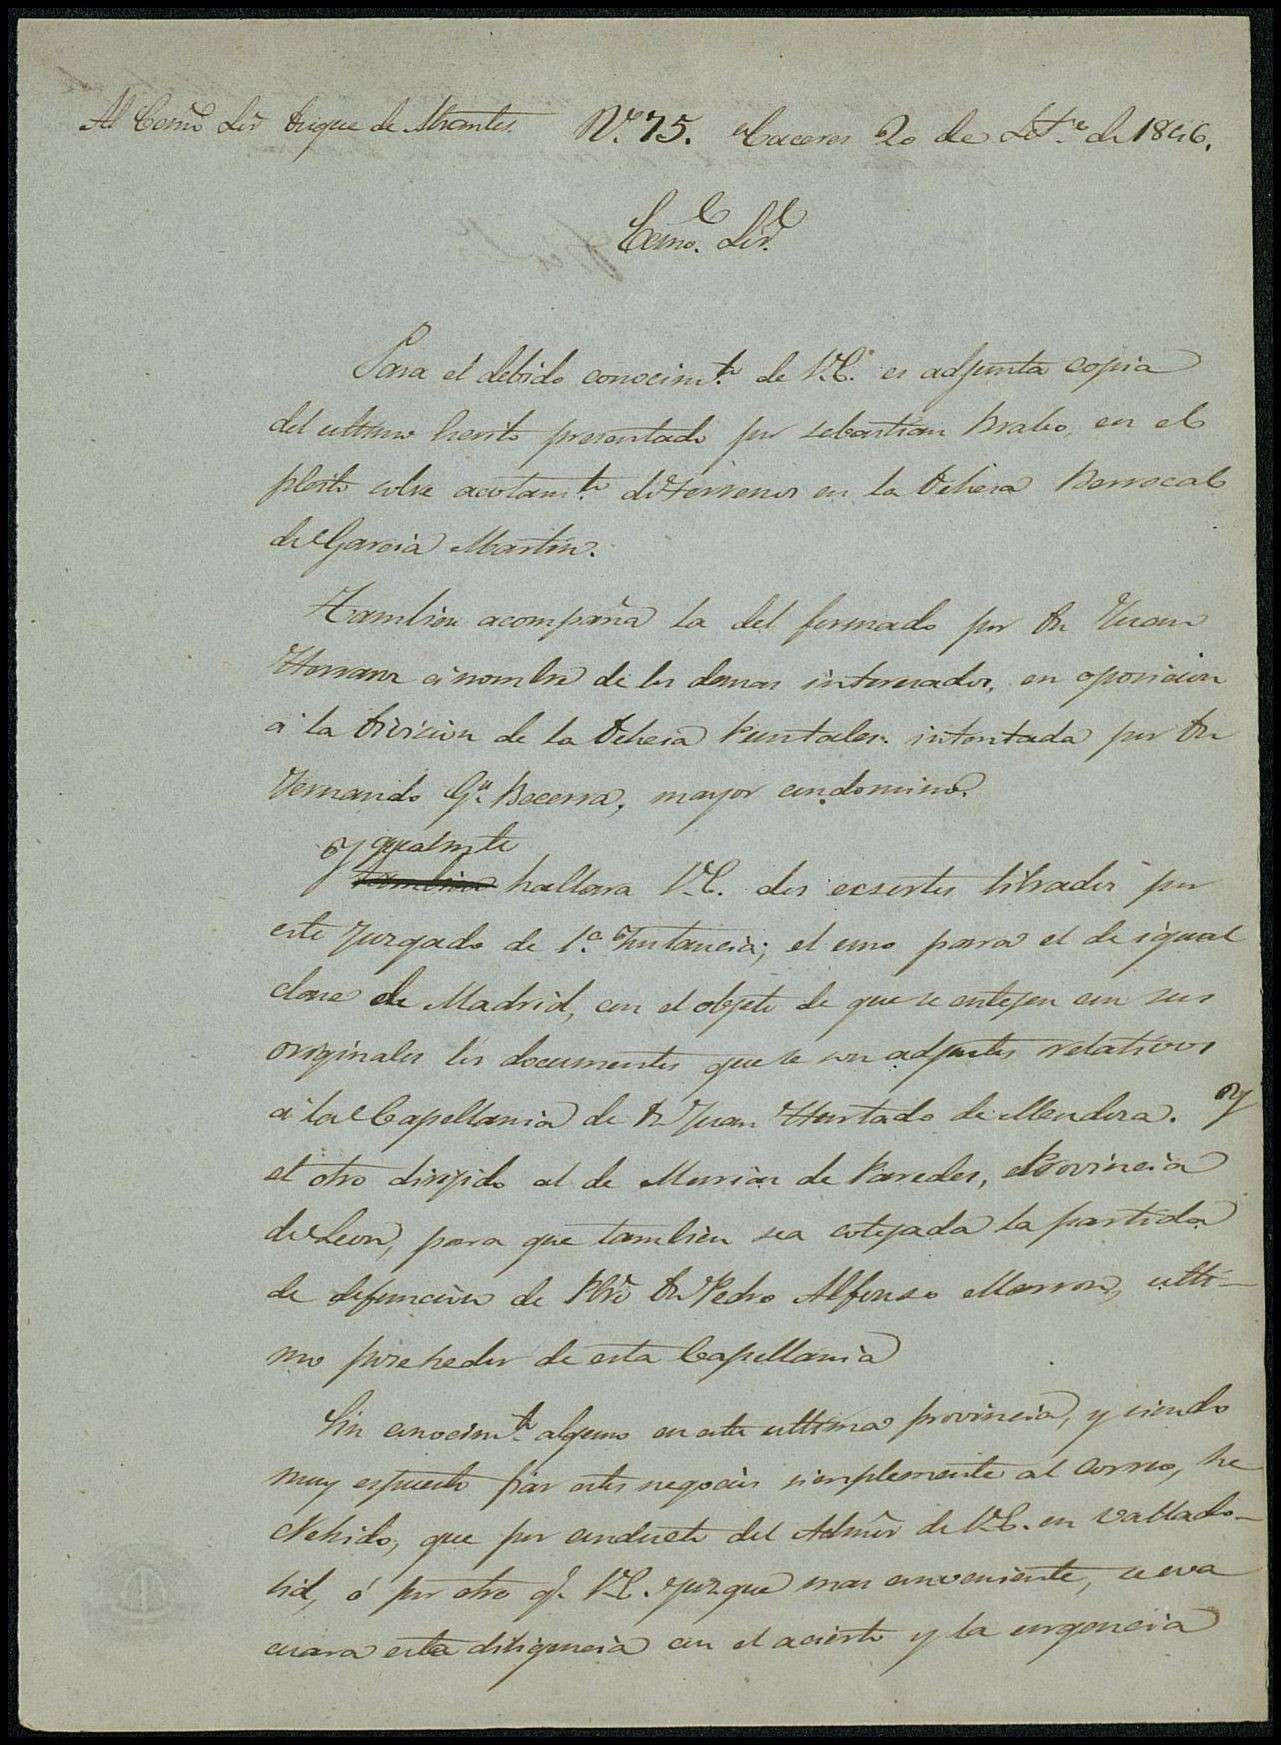 Al Exmo Sor Duque de Abrantes. Nº 75. Caceres 20 de Set.e de 1846.
Exmo. Sor.
Para el debido conocim.to de V.E. es adjunta copia
del ultimo escrito presentado por Sebastian Brabo, en el
pleito sobre acotam.to de terrenos en la Dehesa Berrocal
de Garcia Martin.
Tambien acompaña la del formado por Dn Juan
á nombre de los demas interesados, en oposicion
á la division de la Dehesa Puntales intentada por Dn
Fernando G.ª Becerra, mayor condomino.
Ygualmte
tambien hallara V.E. dos exsortos librados por
este Juzgado de 1.ª Instancia; el uno para el de igual
clase de Madrid, con el objeto de que se cotejen con sus
originales los documentos que le son adjuntos relativos
á la Capellania de Dn Juan Hurtado de Mendoza. Y
el otro dirijido al de Murias de Paredes, Provincia
de Leon, para que tambien sea cotejada la partida
de defuncion de Pbro Dn Pedro Alfonso Marron, ulti-
mo posehedor de esta Capellania
Sin conocim.to alguno en esta ultima provincia, y siendo
muy espuesto fiar estos negocios simplemente al correo, he
debido, que por conducto del Admor de V.E. en Vallado-
lid, ó por otro q.e V.E. juzgue mas conveniente, se eva
cuara esta diligencia con el acierto y la urgencia